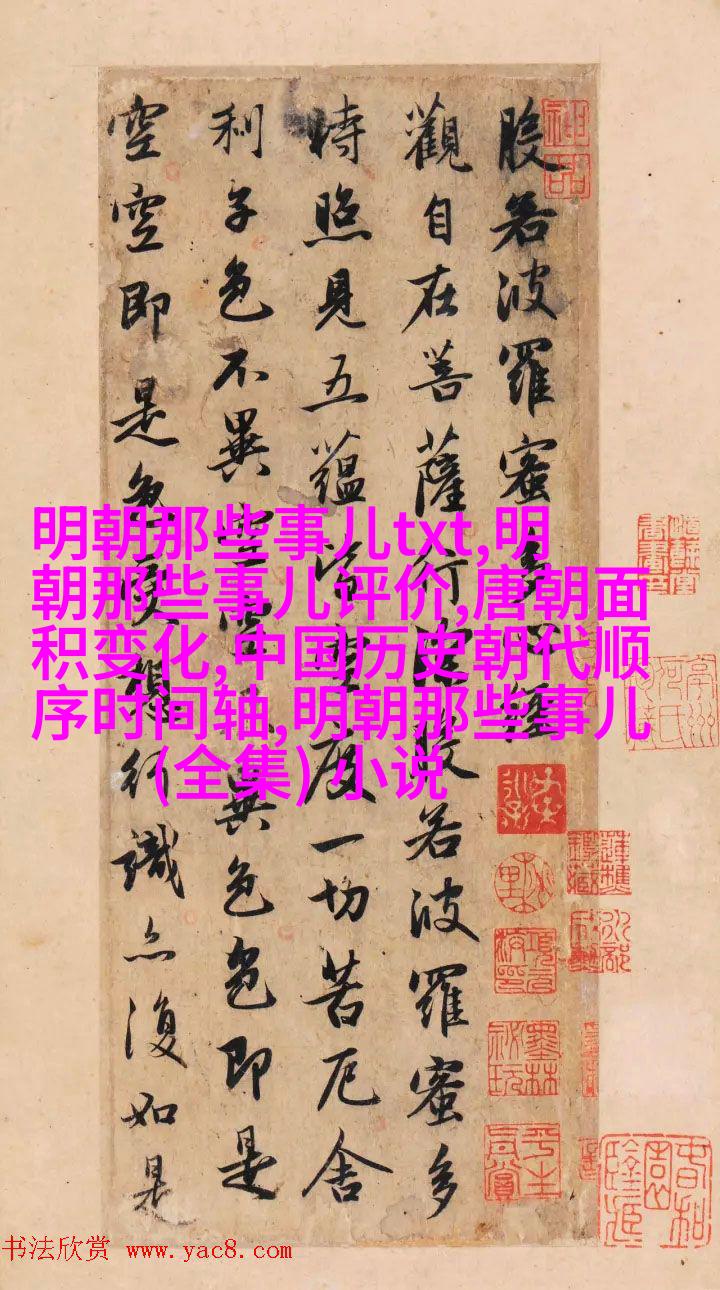 般若波羅蜜多心經
觀自在菩薩行深般若波羅蜜多
時照見五蘊皆空度一切苦厄舍
利子色不異空空不異色色即是
空空即是色受想行識亦復如是
神品
明朝那些事儿txt,明
朝那些事儿评价,唐朝面
积变化,中国历史朝代顺
序时间轴,明朝那些事儿
(全集) 小说
书法欣赏 www.yac8.com